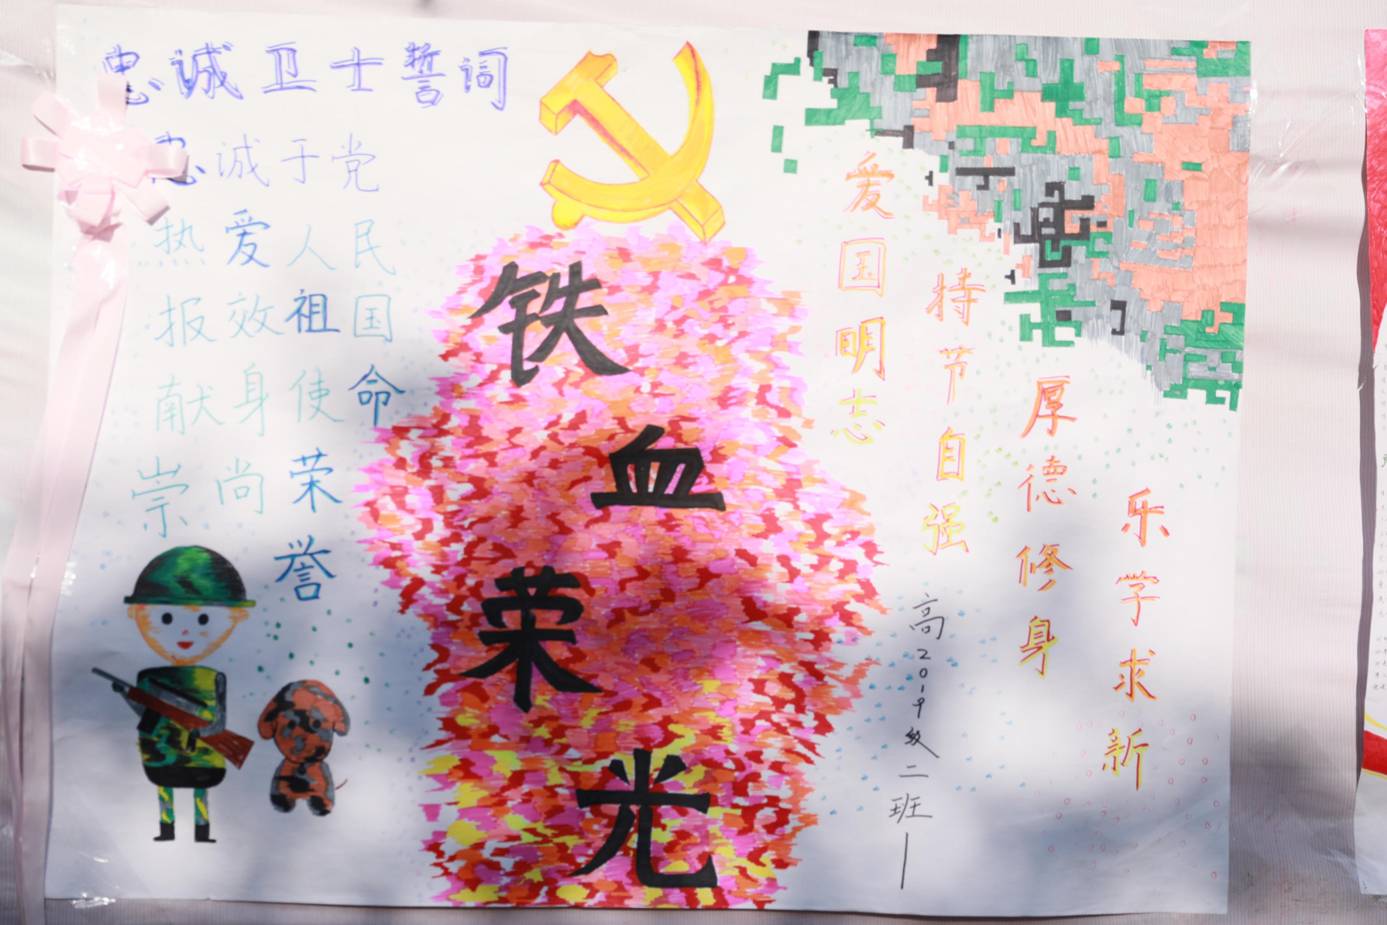 忠诚卫士誓词
忠诚于党
热爱人民
报效祖国
献身使命
崇尚荣誉
铁血荣光
爱国明志
持节自强
厚德修身
乐学求新
高2019级二班